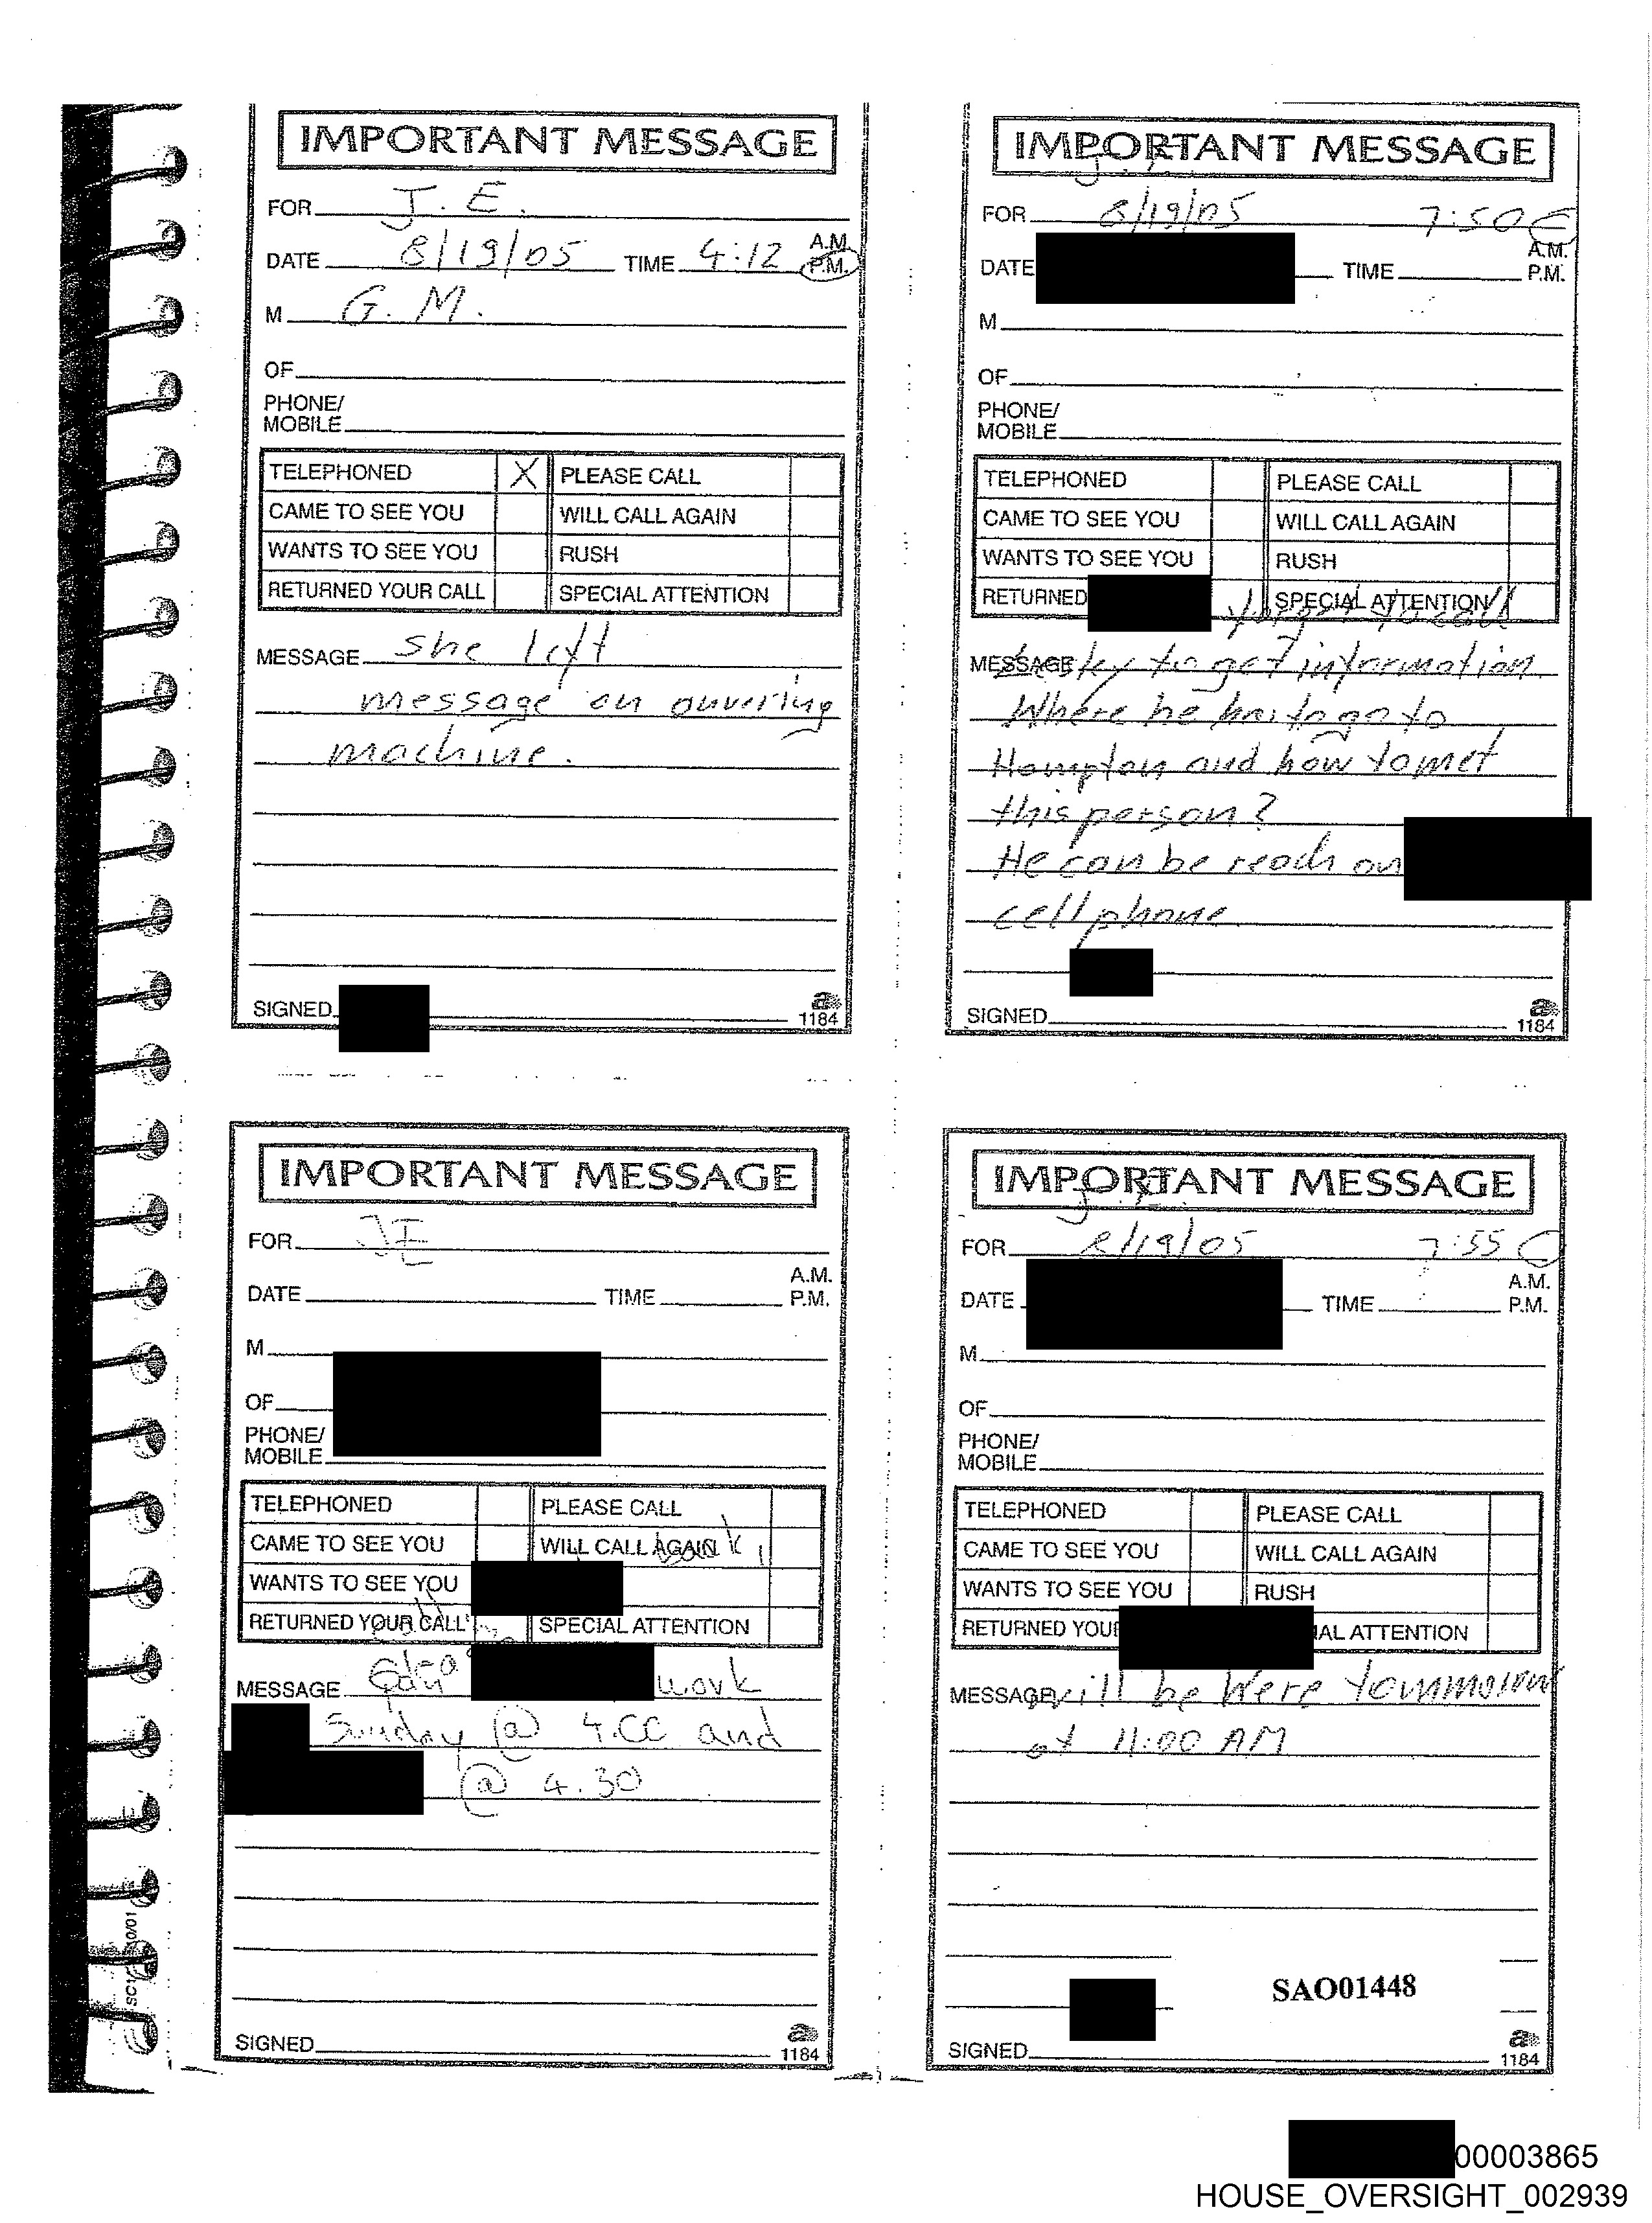 IMPORTANT MESSAGE
FOR J. E.
DATE 8/19/05 TIME 4:12 A.M. P.M.
M G. M.
OF
PHONE/
MOBILE
TELEPHONED X PLEASE CALL
CAME TO SEE YOU WILL CALL AGAIN
WANTS TO SEE YOU RUSH
RETURNED YOUR CALL SPECIAL ATTENTION
MESSAGE she left
message on
machine.
SIGNED
1184
IMPORTANT MESSAGE
J. E.
FOR 8/19/05 7:50
DATE TIME A.M. P.M.
M
OF
PHONE/
MOBILE
TELEPHONED PLEASE CALL
CAME TO SEE YOU WILL CALL AGAIN
WANTS TO SEE YOU RUSH
RETURNED SPECIAL ATTENTION
forget to call
MESSAGE to get information
Where he to go to
Hampton and how to met
this person?
He can be reach on
cell phone
SIGNED
1184
IMPORTANT MESSAGE
FOR JE
DATE TIME A.M. P.M.
M
OF
PHONE/
MOBILE
TELEPHONED PLEASE CALL
CAME TO SEE YOU WILL CALL AGAIN
WANTS TO SEE YOU
RETURNED YOUR CALL SPECIAL ATTENTION
MESSAGE work
Sunday @ 4.00 and
@ 4.30
SIGNED
1184
IMPORTANT MESSAGE
J. E.
FOR 8/19/05 7:55
DATE TIME A.M. P.M.
M
OF
PHONE/
MOBILE
TELEPHONED PLEASE CALL
CAME TO SEE YOU WILL CALL AGAIN
WANTS TO SEE YOU RUSH
RETURNED YOU IAL ATTENTION
MESSAGE will be
at 11:00 AM
SAO01448
SIGNED
1184
00003865
HOUSE_OVERSIGHT_002939